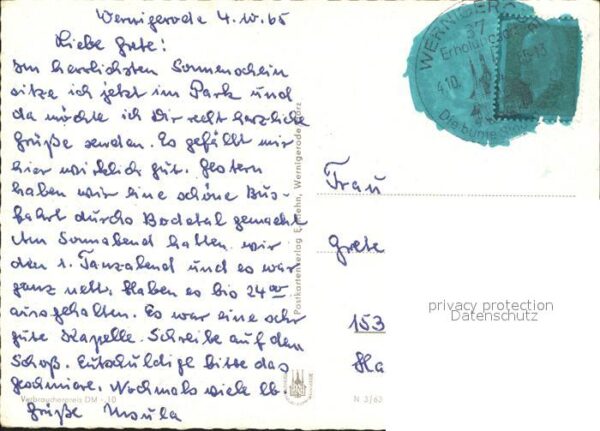 Wernigerode 4.10.65
Liebe Grete!
Im herrlichsten Sonnenschein
sitze ich jetzt im Park und
da möchte ich Dir recht herzliche
Grüße senden. Es gefällt mir
hier wirklich gut. Gestern
haben wir eine schöne Bus-
fahrt durchs Bodetal gemacht
Am Sonnabend hatten wir
den 1. Tanzabend und es war
ganz nett. Haben es bis 24 00
ausgehalten. Es war eine sehr
gute Kapelle. Schreibe auf dem
Schoß. Entschuldige bitte das
Geschmiere. Nochmals viele lb.
Grüße
Verbraucherpreis DM -,10
Postkartenverlag E. Riehn, Wernigerode Harz
N 3/63
WERNIGERODE
37
Erholungsort
4.10.
Die bunte Stadt
Frau
Grete
153
Ha
privacy protection
Datenschutz